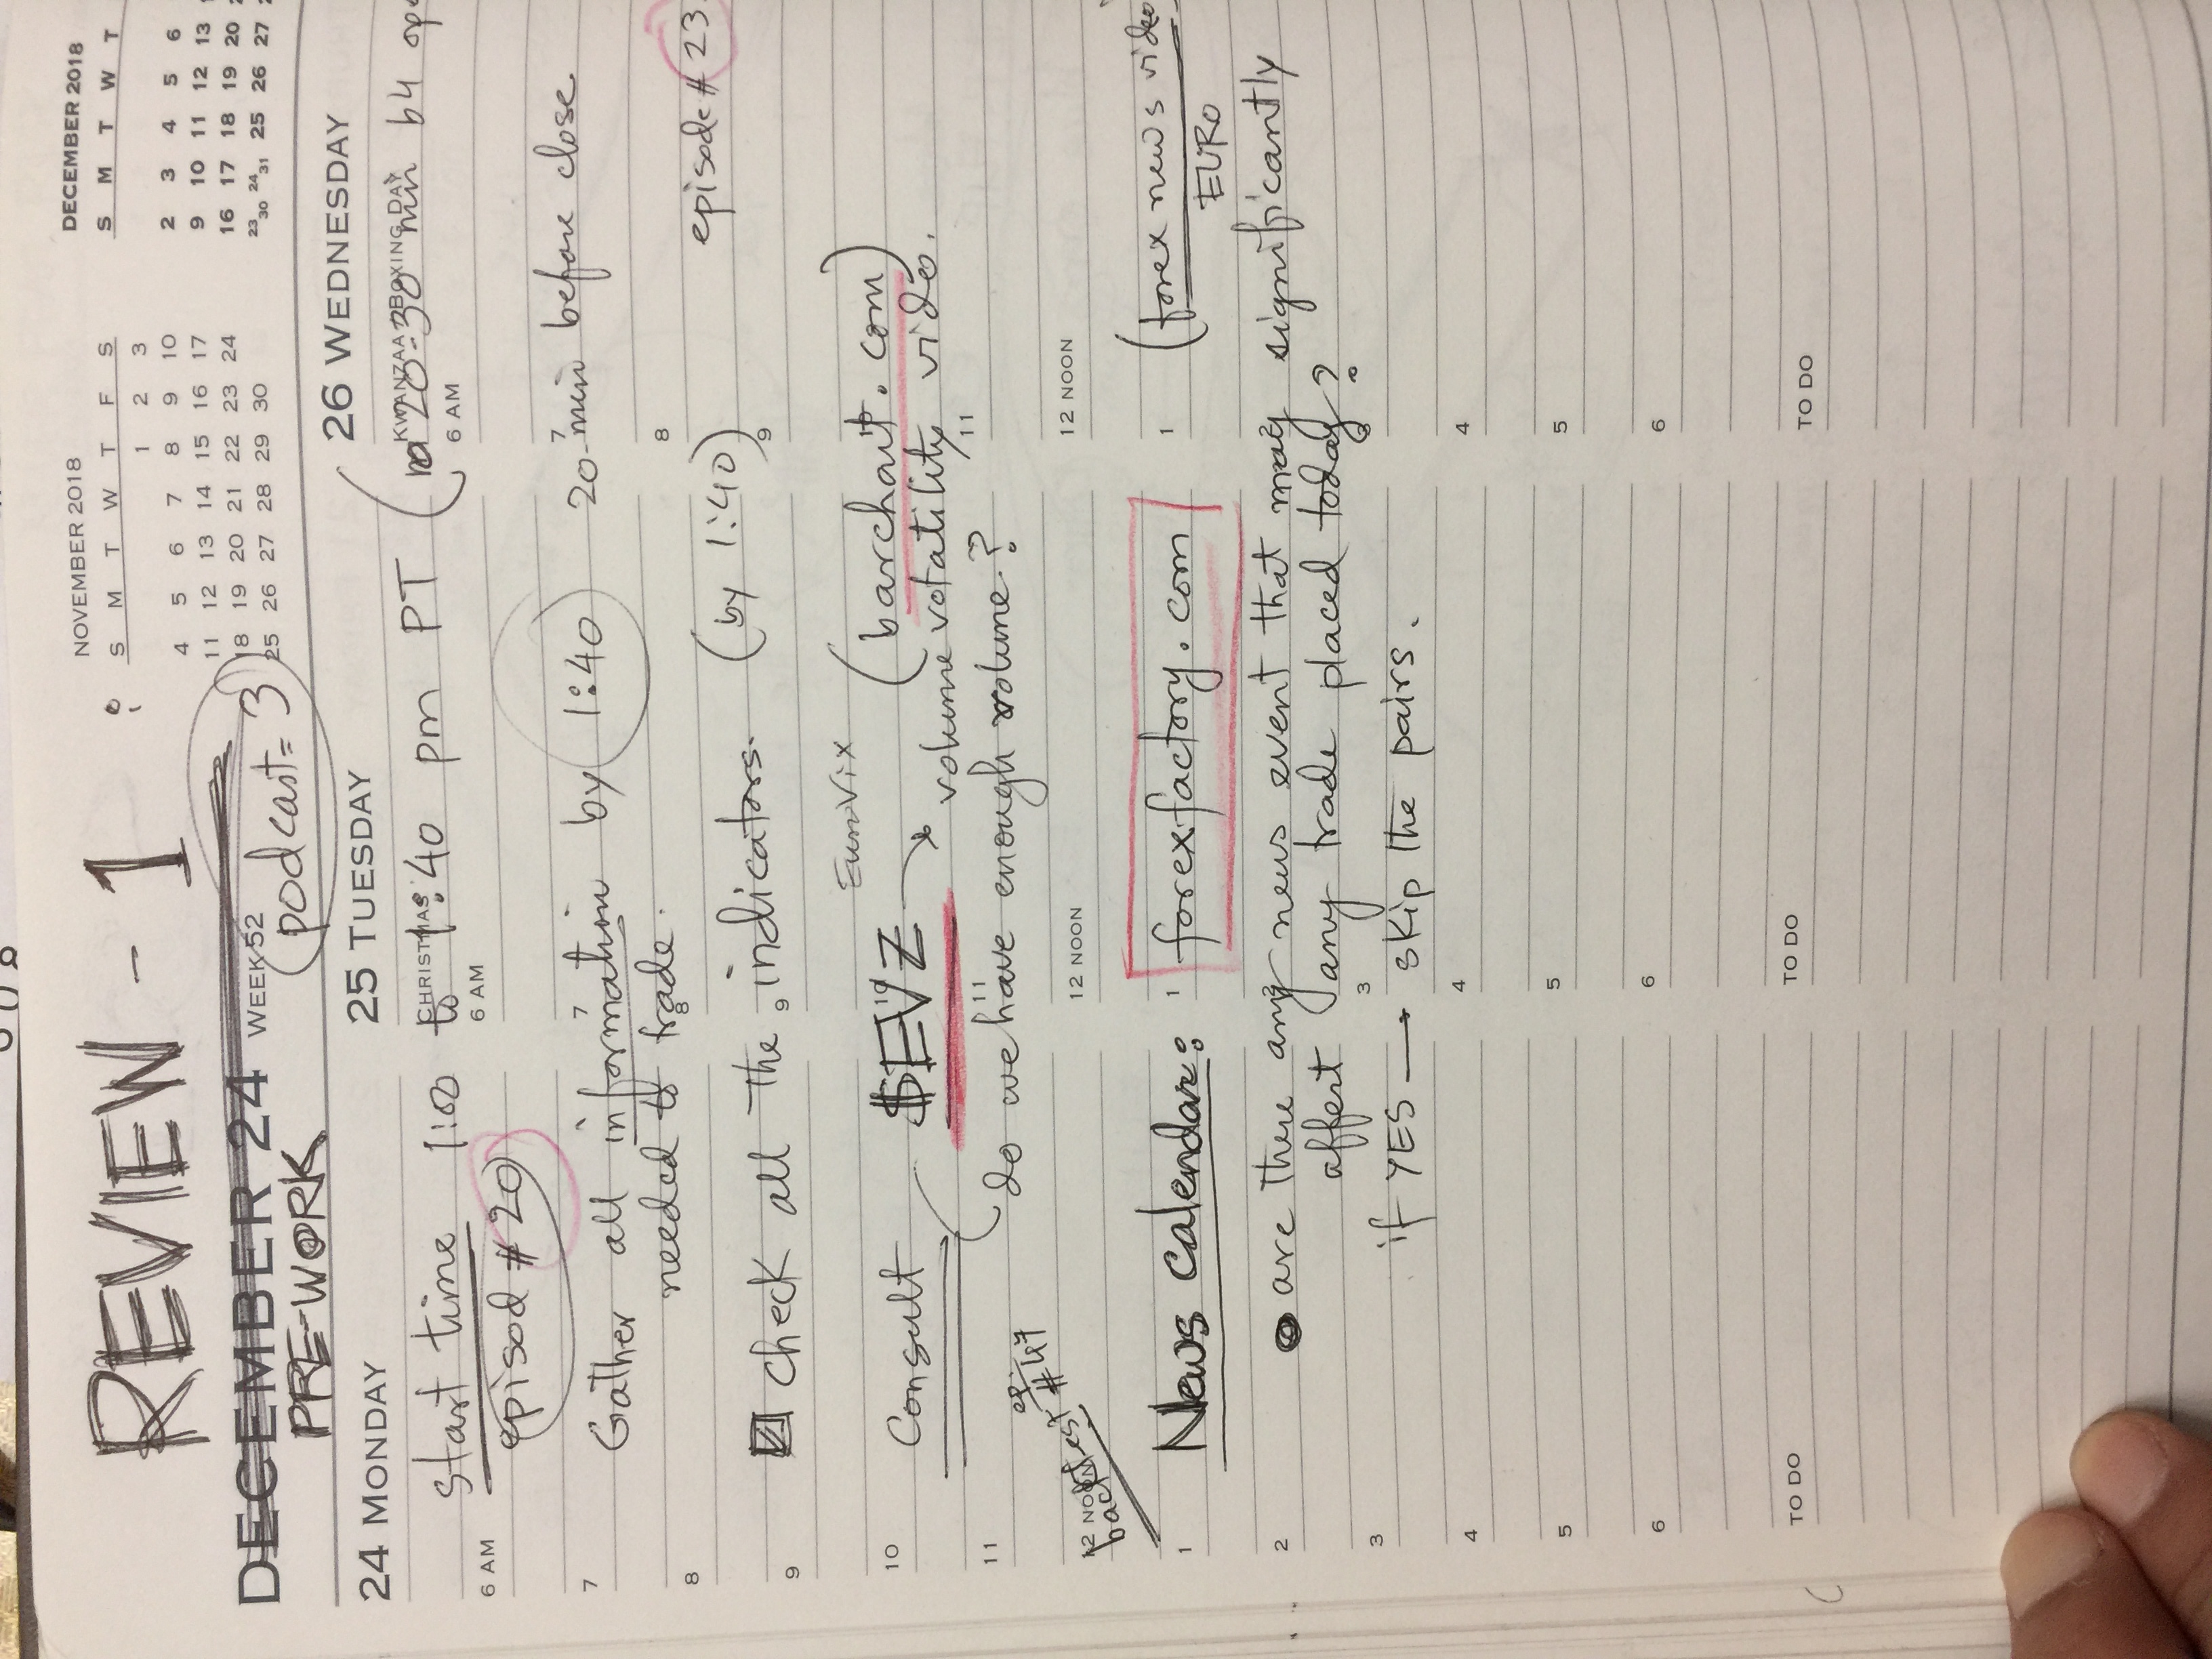 REVIEW - 1 :
NOVEMBER 2018
S M T W T F S
1 2 3
4 5 6 7 8 9 10
11 12 13 14 15 16 17
18 19 20 21 22 23 24
25 26 27 28 29 30
DECEMBER 2018
S M T W T
2 3 4 5 6
9 10 11 12 13
16 17 18 19 20
23 30 24 31 25 26 27
DECEMBER 24 WEEK 52
podcast = 3
PRE-WORK
24 MONDAY 25 TUESDAY 26 WEDNESDAY
CHRISTMAS KWANZAA BOXING DAY
start time 1:00 to 1:40 pm PT 20-30 min b4
6 AM 6 AM 6 AM
episod #20
7 7 7
Gather all information by 1:40 20 min before close
needed to trade.
8 8 8
episode # 23
check all the indicators. (by 1:40)
9 9 9
EuroVix
10 10 10
Consult $EVZ (barchart.com)
volume votatility video.
11 11 11
do we have enough volume?
backtest ep. #47
12 NOON 12 NOON 12 NOON
1 1 1
News calendar: forexfactory.com (forex news video
EURO
2 2 2
are there any news event that may significantly
affert any trade placed today?
3 3 3
if YES → skip the pairs.
4 4 4
5 5 5
6 6 6
TO DO TO DO TO DO